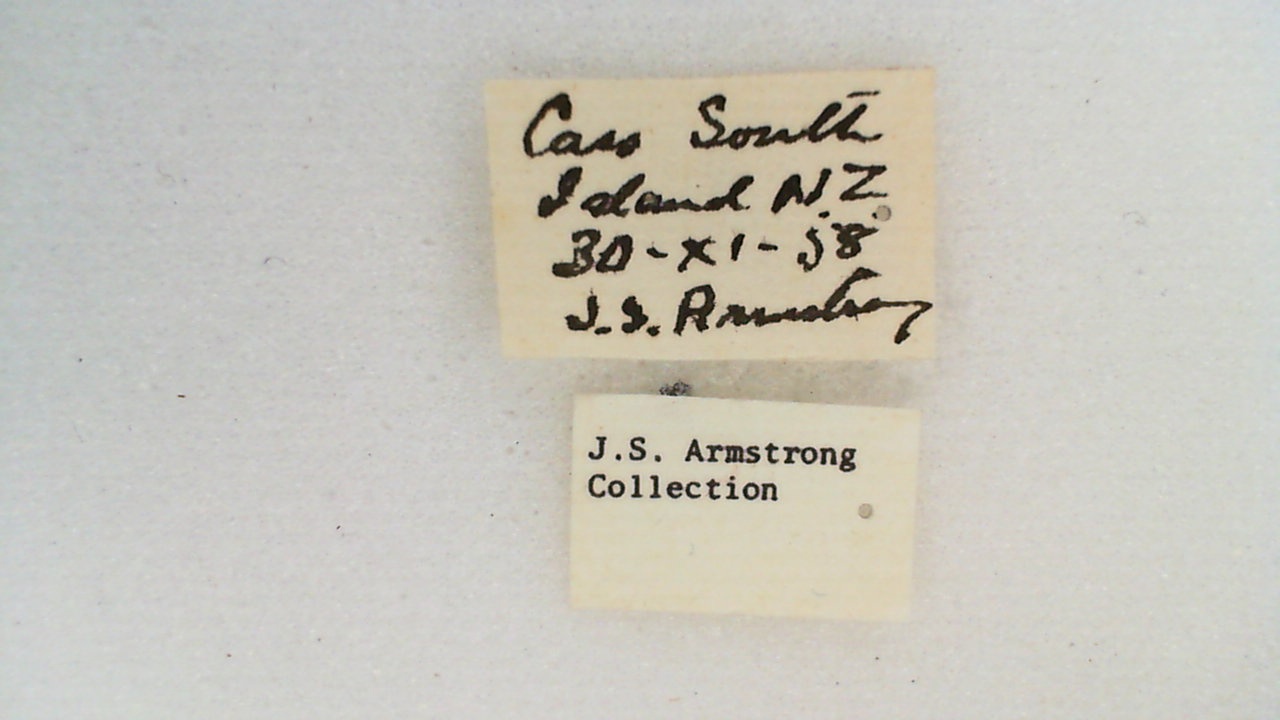 Cass South
Island N.Z.
30-XI-58
J.S. Armstrong
J.S. Armstrong
Collection